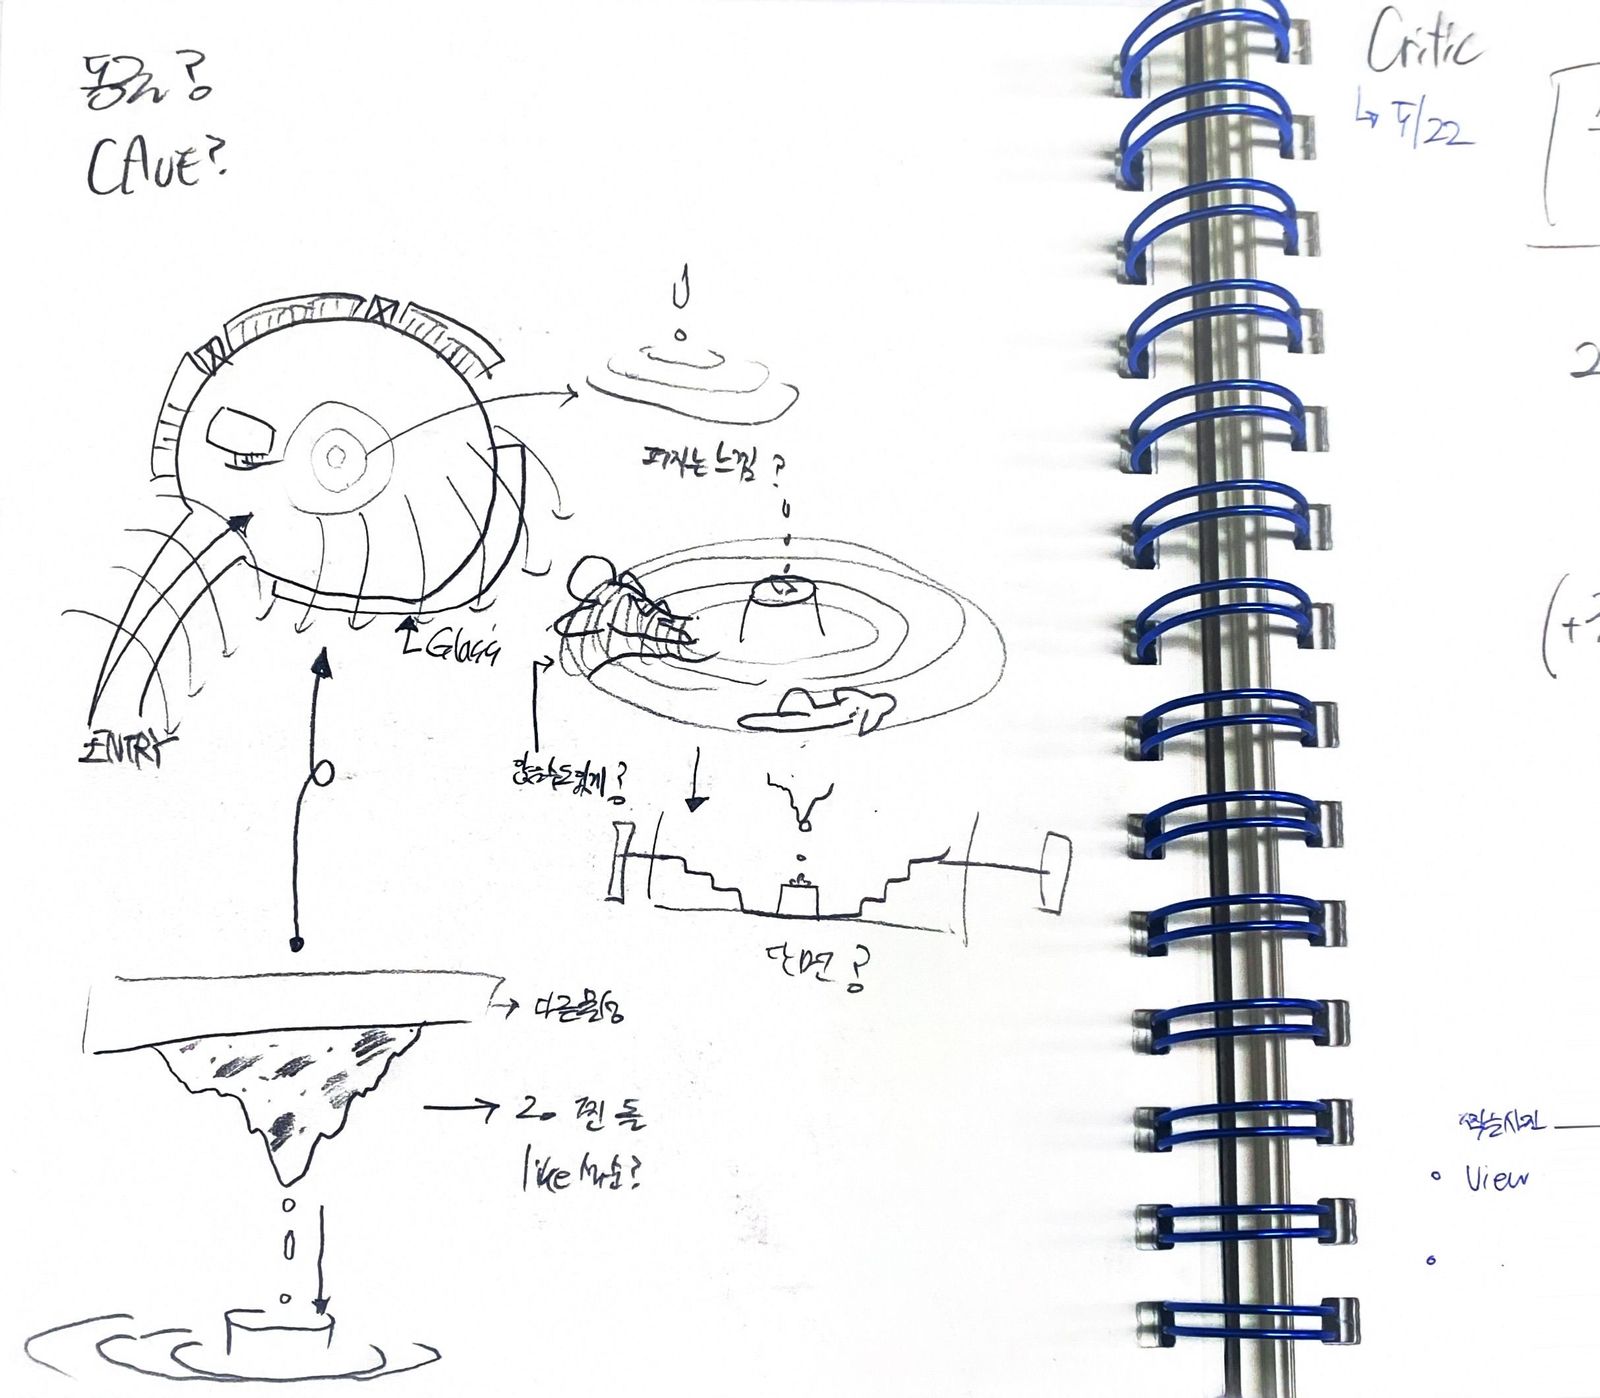 동굴?
CAVE?
퍼지는 느낌?
Glass
ENTRY
앉을 수도 있게?
단면?
다른 물성
2. 찐 돌
like 석순?
Critic
↳ 5/22
2
View